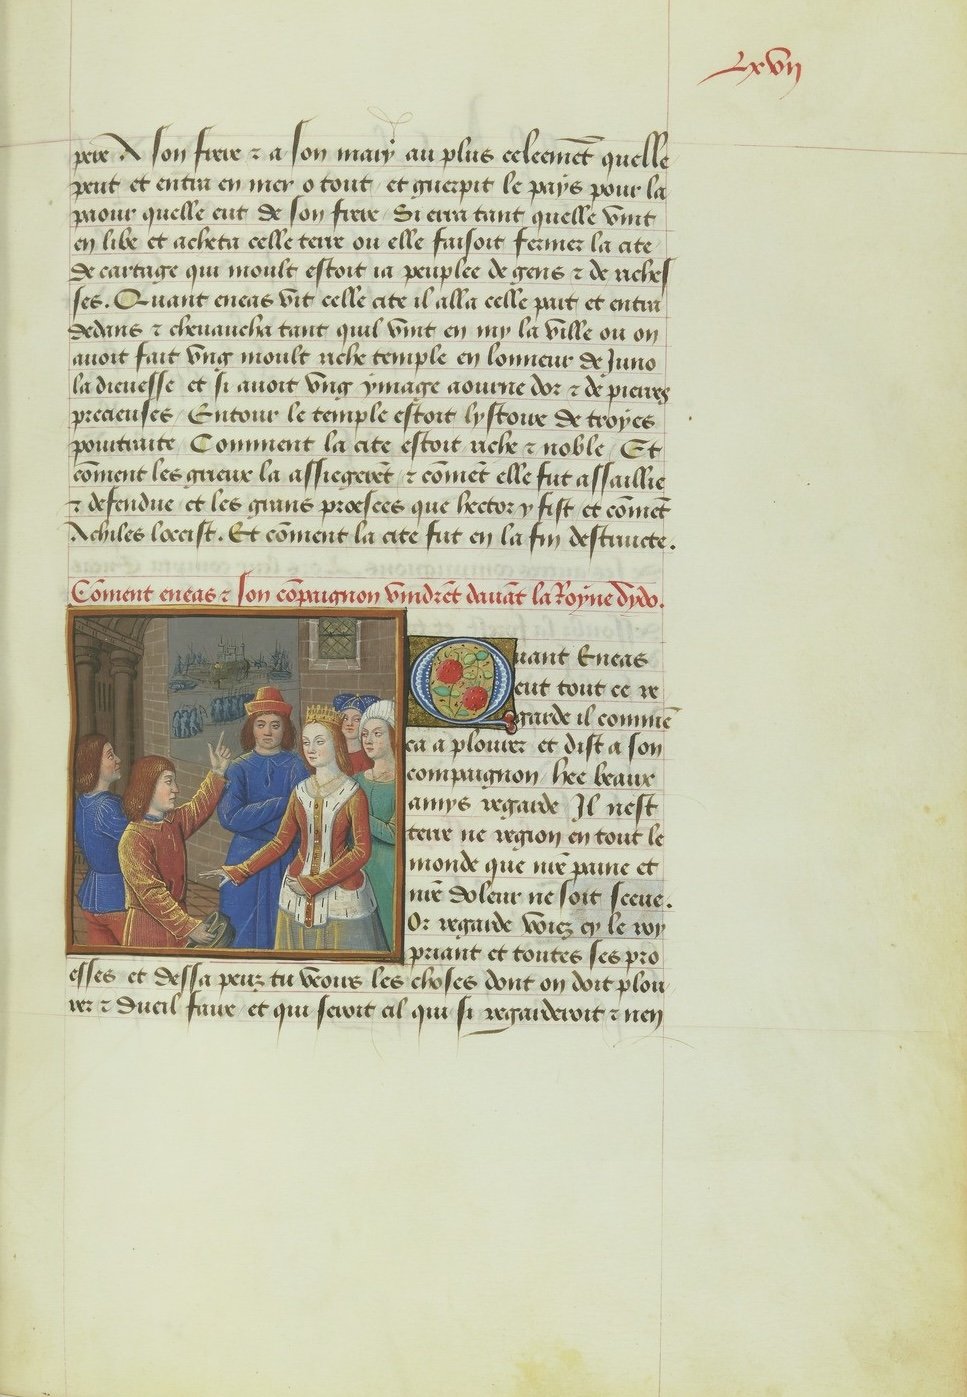 Lxvij
pere A son frere ⁊ a son mary au plus celeemēt quelle
peut et entra en mer o tout et guerpit le pays pour la
paour quelle eut de son frere Si erra tant quelle vint
en libe et acheta celle terre ou elle faisoit fermer la cite
de cartage qui moult estoit ia peuplee de gens ⁊ de riches
ses. Quant eneas vit celle cite il alla celle part et entra
dedans ⁊ chevaucha tant quil vint en my la ville ou on
avoit fait vng moult riche temple en lonneur de Juno
la dieuesse et si avoit vng ymage aourne dor ⁊ de pierres
precieuses Entour le temple estoit lystoire de troyes
pourtraite Comment la cite estoit riche ⁊ noble Et
cōment les grieux la assiegerēt ⁊ cōmēt elle fut assaillie
⁊ defendue et les grans proesces que hector y fist et cōmēt
Achiles locist. Et cōment la cite fut en la fin destructe.
Cōment eneas ⁊ son cōpaignon vindrēt davāt la Royne dydo.
Quant Eneas
eut tout ce re
garde il commē
ca a plourer et dist a son
compaignon hee beaux
amys regarde Il nest
terre ne region en tout le
monde que nr̄e paine et
nr̄e doleur ne soit sceue.
Or regarde voiez cy le roy
priant et toutes ses pro
esses et dessa peuz tu veoir les choses dont on doit plou
rer ⁊ dueil faire et qui seroit cil qui si regarderoit ⁊ nen